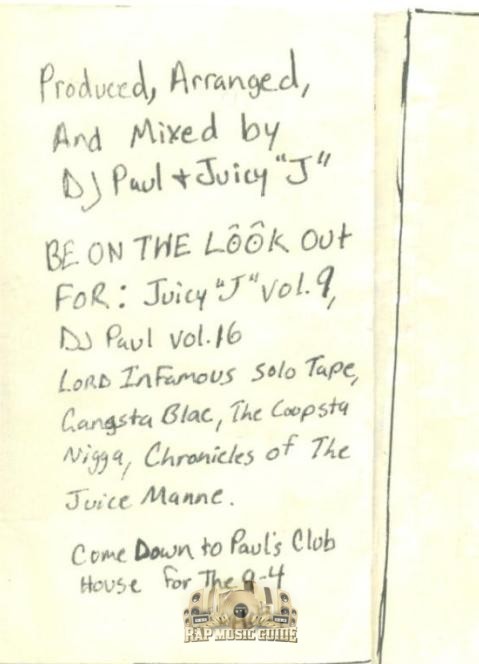 Produced, Arranged,
And Mixed by
DJ Paul + Juicy "J"
BE ON THE LÔÔK Out
FOR: Juicy "J" vol. 9,
DJ Paul vol. 16
LORD InFamous Solo Tape,
Gangsta Blac, The Coopsta
Nigga, Chronicles of The
Juice Manne.
Come Down to Paul's Club
House For The 9-4
RAP MUSIC GUIDE